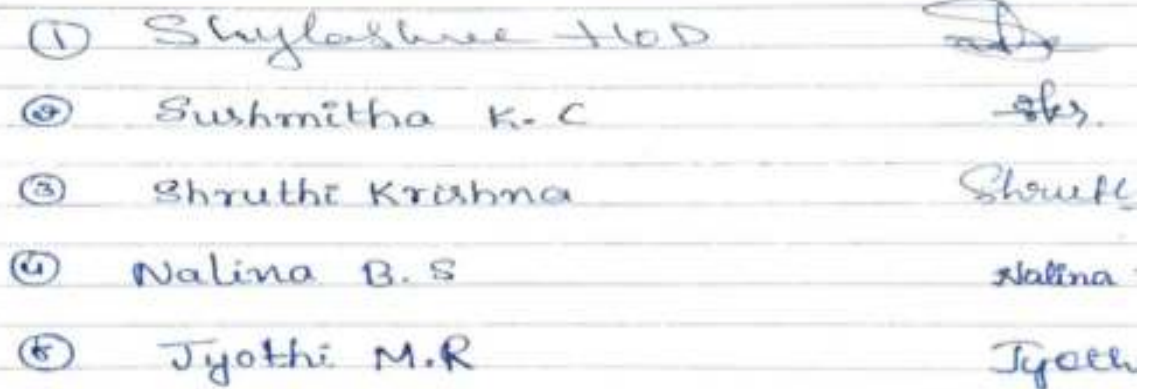 ① Shylashree HOD
② Sushmitha K.C
③ Shruthi Krishna Shruth
④ Nalina B.S Nalina
⑤ Jyothi M.R Jyoth